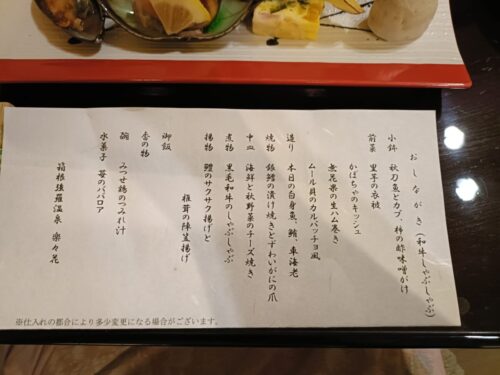 おしながき(和牛しゃぶしゃぶ)
小鉢 秋刀魚とカブ、柿の酢味噌がけ
前菜 里芋の衣被
かぼちゃのキッシュ
無花果の生ハム巻き
ムール貝のカルパッチョ風
造り 本日の白身魚、鮪、車海老
焼物 銀鱈の漬け焼きとずわいがにの爪
中皿 海鮮と秋野菜のチーズ焼き
煮物 黒毛和牛のしゃぶしゃぶ
揚物 鱧のサクサク揚げと
椎茸の陣笠揚げ
御飯
香の物
椀 みつせ鶏のつみれ汁
水菓子 苺のババロア
箱根強羅温泉 楽々花
※仕入れの都合により多少変更になる場合がございます。